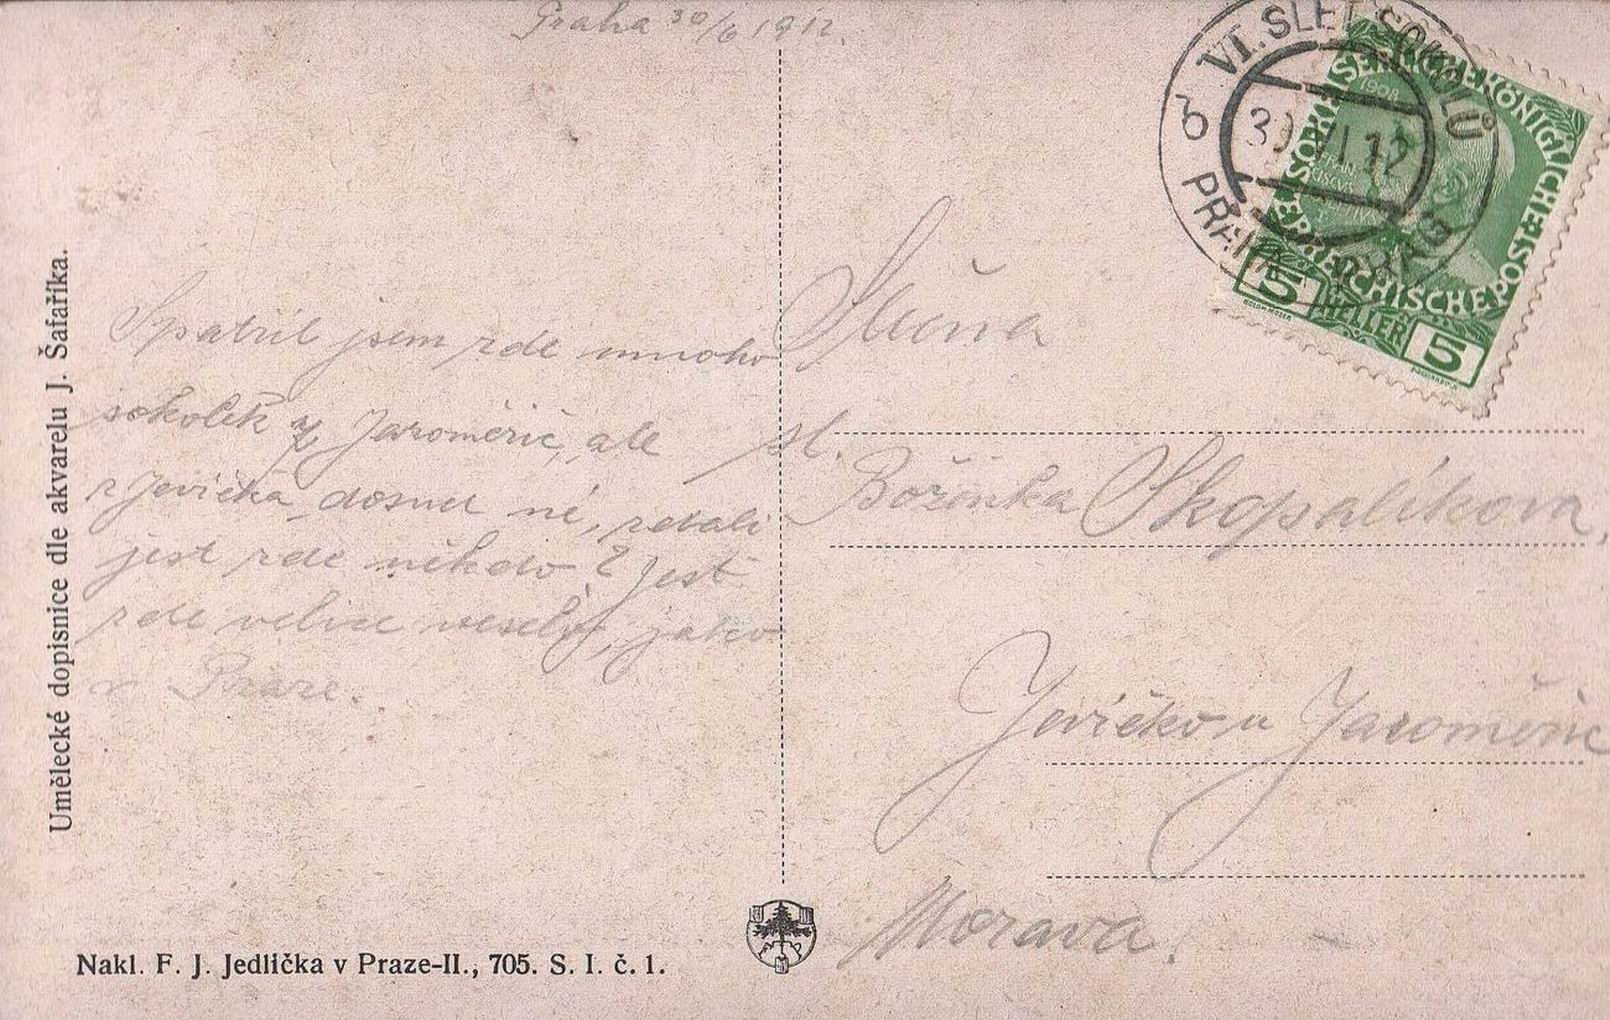 Praha 30/6 1912.
VI. SLET SOKOLŮ
6
30 VI 12
PRAHA PRAG
KAISERLICHE KÖNIGLICHE POSTE
1908
5 HELLER 5
KOLOM. MOSER
Umělecké dopisnice dle akvarelu J. Šafaříka.
Spatřil jsem zde mnoho
sokolek z Jaroměřic, ale
z Jevíčka dosud né, zdali
jest zde někdo? Jest
zde velice veselo, jako
v Praze.
Slečna
sl.
Boženka Skopalíkova,
Jevíčko u Jaroměřic
Morava.
Nakl. F. J. Jedlička v Praze-II., 705. S. I. č. 1.